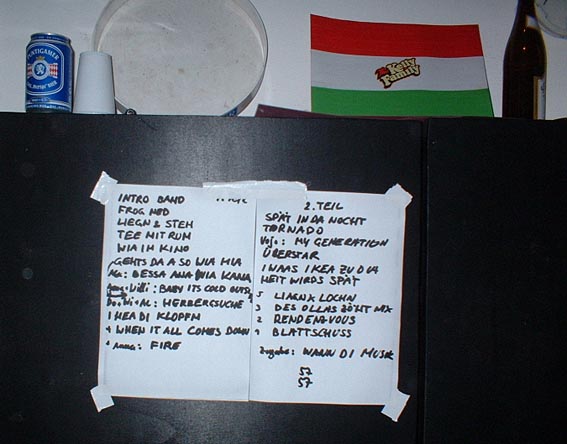 PUNTIGAMER
The Kelly Family
INTRO BAND
FROG MOD
LIEGN & STEH
TEE MIT RUM
WIA IM KINO
GEHTS DA A SO WIA MIA
BESSA ANA WIA KANA
BABY ITS COLD OUTS
HERBERGSUCHE
I HEA DI KLOPFM
WHEN IT ALL COMES DOWN
Anna: FIRE
2. TEIL
SPÄT IN DA NOCHT
TORNADO
MY GENERATION
ÜBERSTAR
I WAAS I KEA ZU DIA
HEIT WIRDS SPÄT
5 LIABN & LOCHN
3 DES OLLAS ZÖHT NIX
2 RENDEZVOUS
1 BLATTSCHUSS
Zugabe: WANN DI MUSIK
57
57